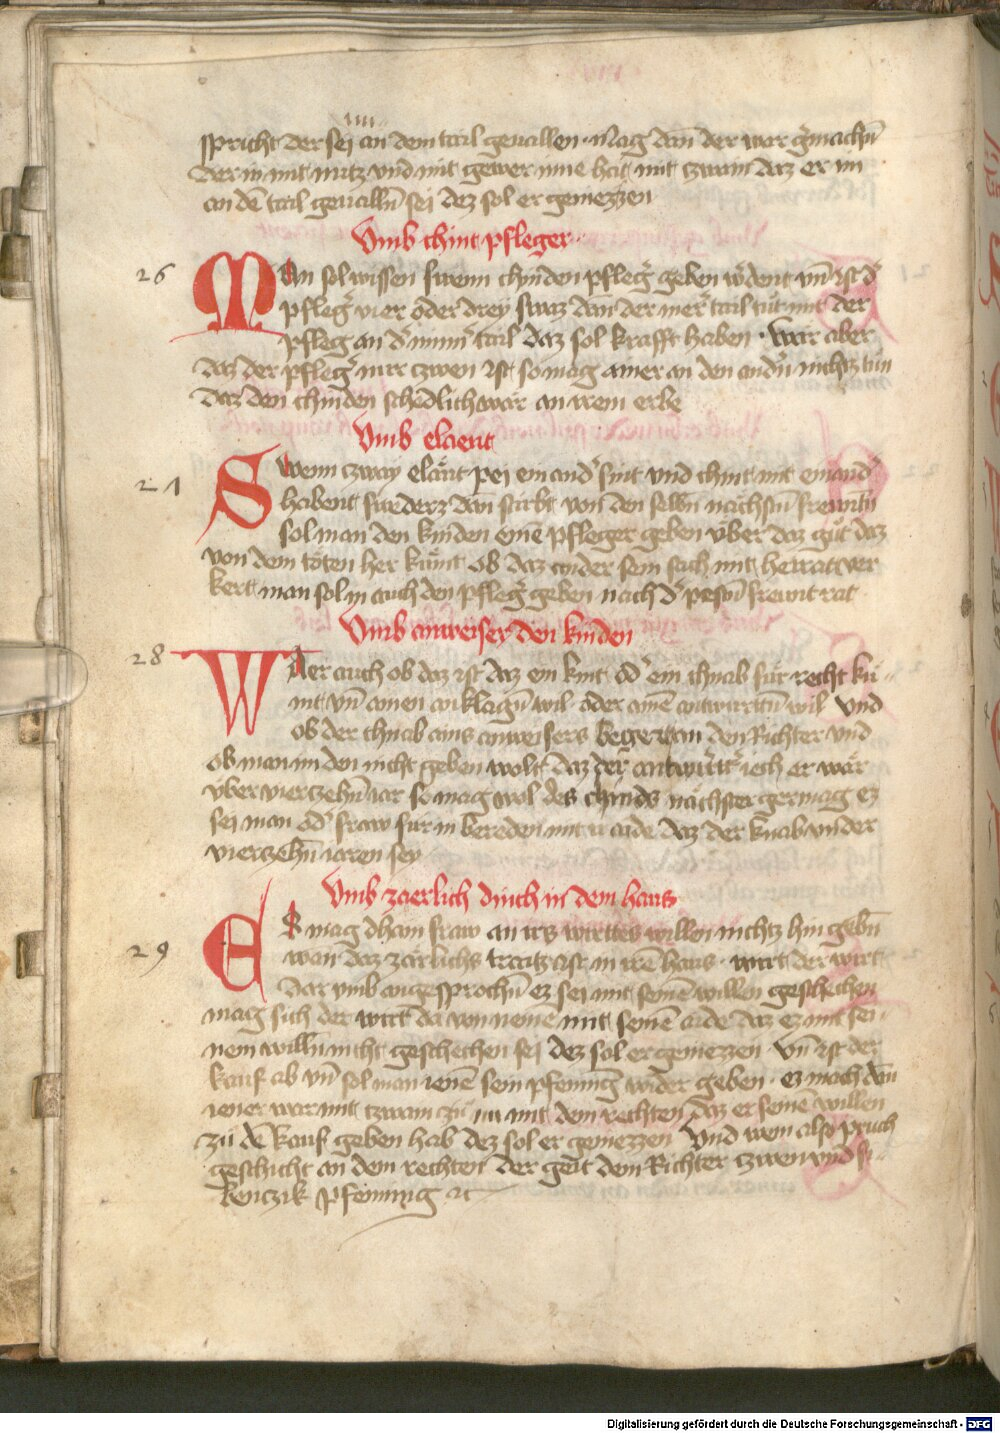 spricht der sej an dem tail geuallen · Mag dañ der war gemachñ
der in mit nutz vnd mit gewer inne hat mit czwain daz er im
an dē tail geuallñ sei dez sol er geniezzen
Vmb chint pfleger ·
26 Man sol wissen swenn chinden pfleg̃ geben wˀdent vñ ist dˀ
pfleg̃ vier oder drey swaz dañ der merˀ tail tůt mit der
pfleg an dˀ minnˀ tail daz sol krafft haben · Wär aber
daz der pfleg̃ nur czwen ist so mag ainer an den andˀn nichtz tůn
daz den chinden schedlich wär an irem erbe
Vmb elaent
27 Swenn czway eläut pei ein andˀ sint vnd chint mit einandˀ
habent sweders dañ stirbt von den selbñ nächstñ frewntñ
sol man den kinden einē pfleger geben vber daz gůt daz
von dem toten her kůmt ob daz ander sein sach mit heirat ver
kert man sol in auch den pfleg̃ geben nach dˀ pestñ frewnt rat
Vmb anweisey den kinden
28 Wer auch ob daz ist daz ein kint odˀ ein chnab für recht kü¨
mt vñ ainen anklagñ wil oder ainē antwurttñ wil vnd
ob der chnab ains anweisers begert an den Richter vnd
ob man im den nicht geben wolt daz der antwůrtˀ iech er wär
vber vierzehñ iar so mag wol des chinds nächster germag ez
sei man odˀ fraw für in bereden mit ir aide daz der knab vnder
vierzehñ iaren sey
Vmb zaerlich dinch in dem haus
29 Es mag dhain fraw an irs wirttes willen nichtz hin gebñ
wan daz zärlichs traitz ist in irē haus · wirt der wirt
dar vmb angesprochñ ez sei mit seinē willen geschechen
mag sich der wirt da von neme mit seinē aide daz ez mit sei¨
nem willñ nicht geschechen sei dez sol er geniezzen · vñ ist der
kauf ab vñ sol man ienē sein pfenning wider geben · ez mach dañ
iener war mit czwain zu im mit dem rechten daz er seinē willen
zu dē kauf geben hab dez sol er geniezzen Vnd wem also pruch
geschicht an dem rechten der geit dem Richter czwen vnd si¨
benczik pfenning ꝛc
Digitalisierung gefördert durch die Deutsche Forschungsgemeinschaft - DFG